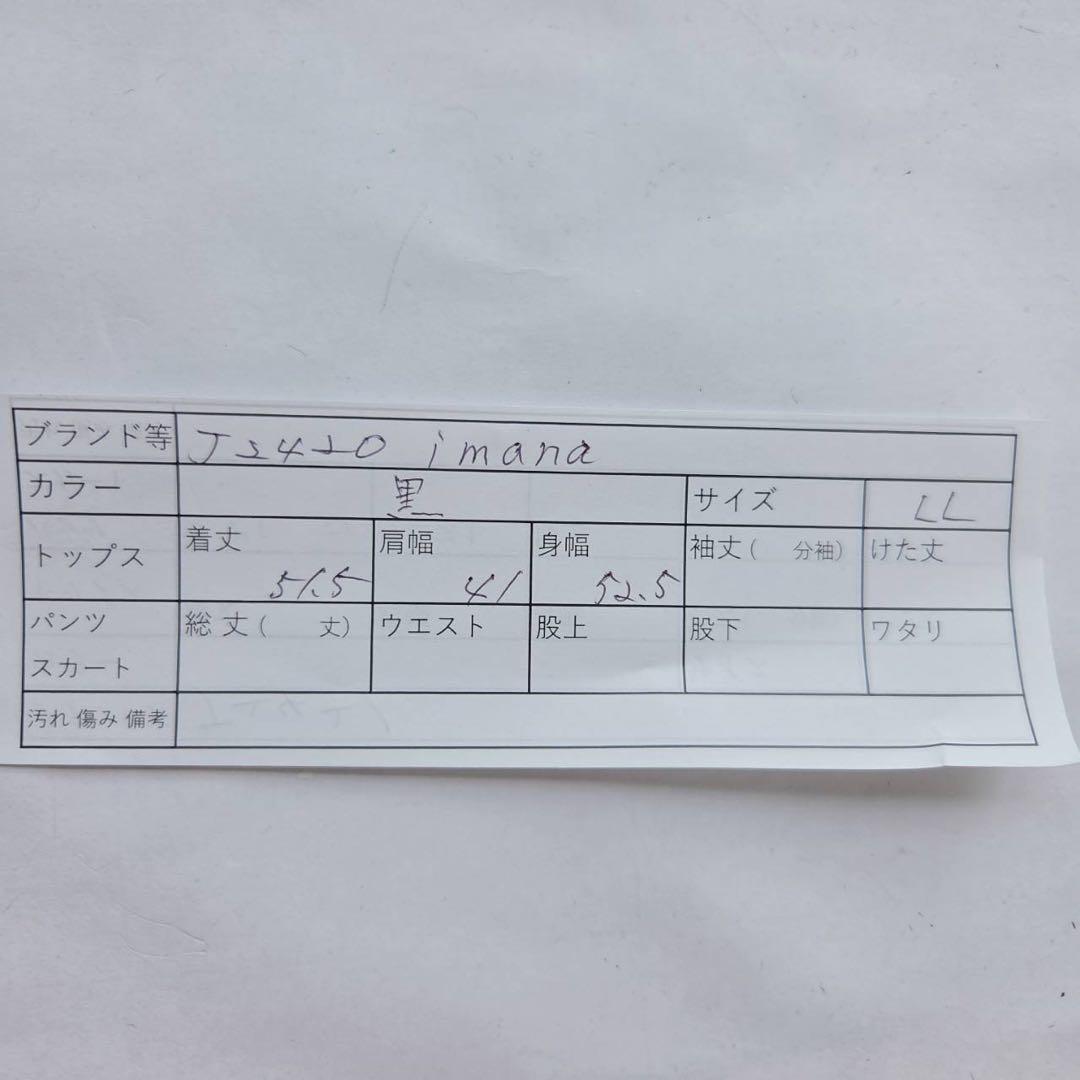 ブランド等 J2420 imana
カラー 黒 サイズ LL
トップス 着丈 51.5 肩幅 41 身幅 52.5 袖丈( 分袖) けた丈
パンツ スカート 総丈( 丈) ウエスト 股上 股下 ワタリ
汚れ 傷み 備考